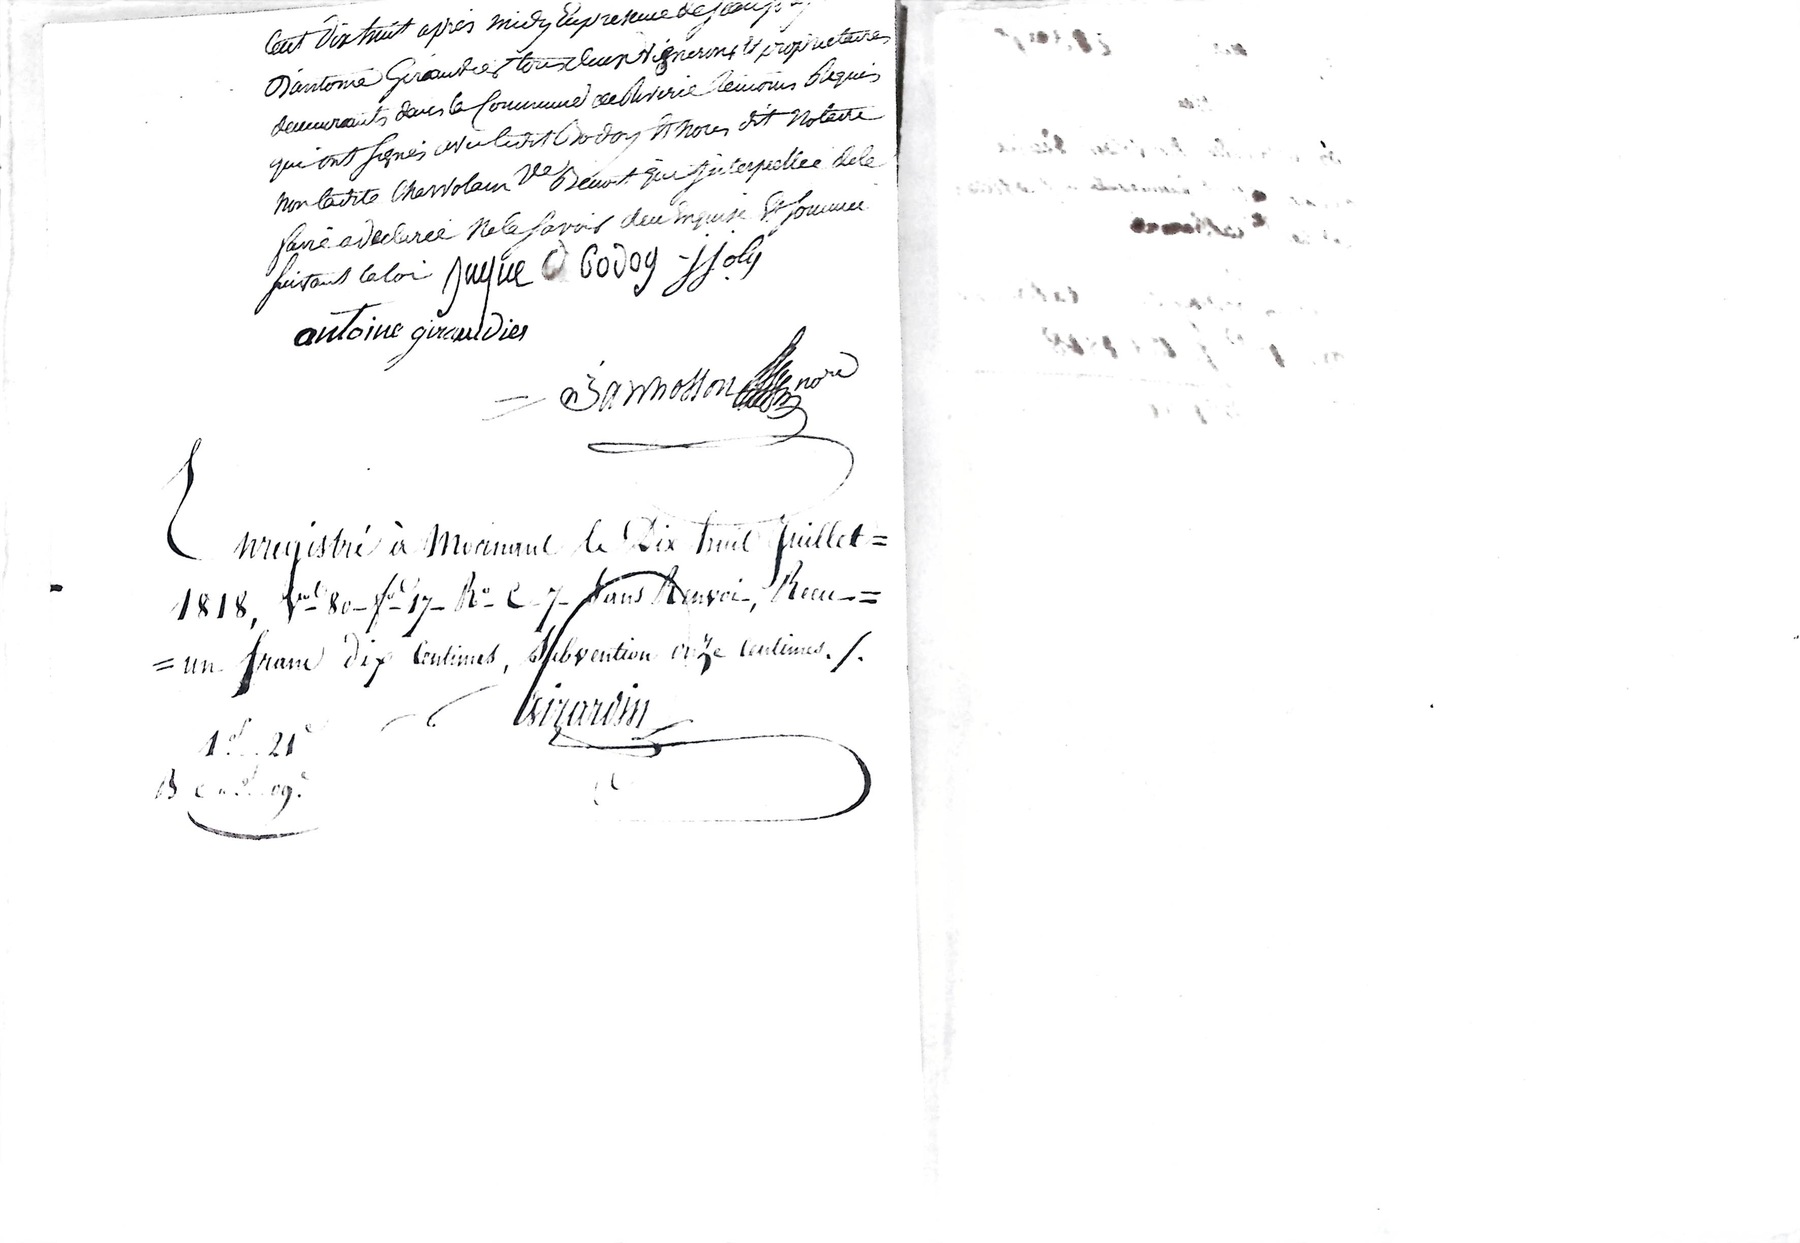 Cent Dix huit après midy En presence de Jean
D'antoine Giraudier tous deux vignerons Et proprietaires
demeurants dans la Commune de Riverie temoins Requis
qui ont signés avec ledit Godoy Et nous dit Notaire
non ladite Chavvolain Ve Benoit qui Interpellée de le
faire a declaree ne le savoir deue Enquise Et sommée
suivant la loi Juque Godoy JJoly
antoine giraudier
Bawhosson nore
Enregistré à Mornant le Dix huit Juillet =
1818, vol. 80 fol. 17 Ro C. 7 Sans Renvoi, Recu =
= un franc dix Centimes, Subvention onze centimes. /.
Girardin
1f. 21c